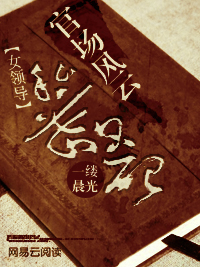 官场风云
【女领导】
一缕晨光
网易云阅读